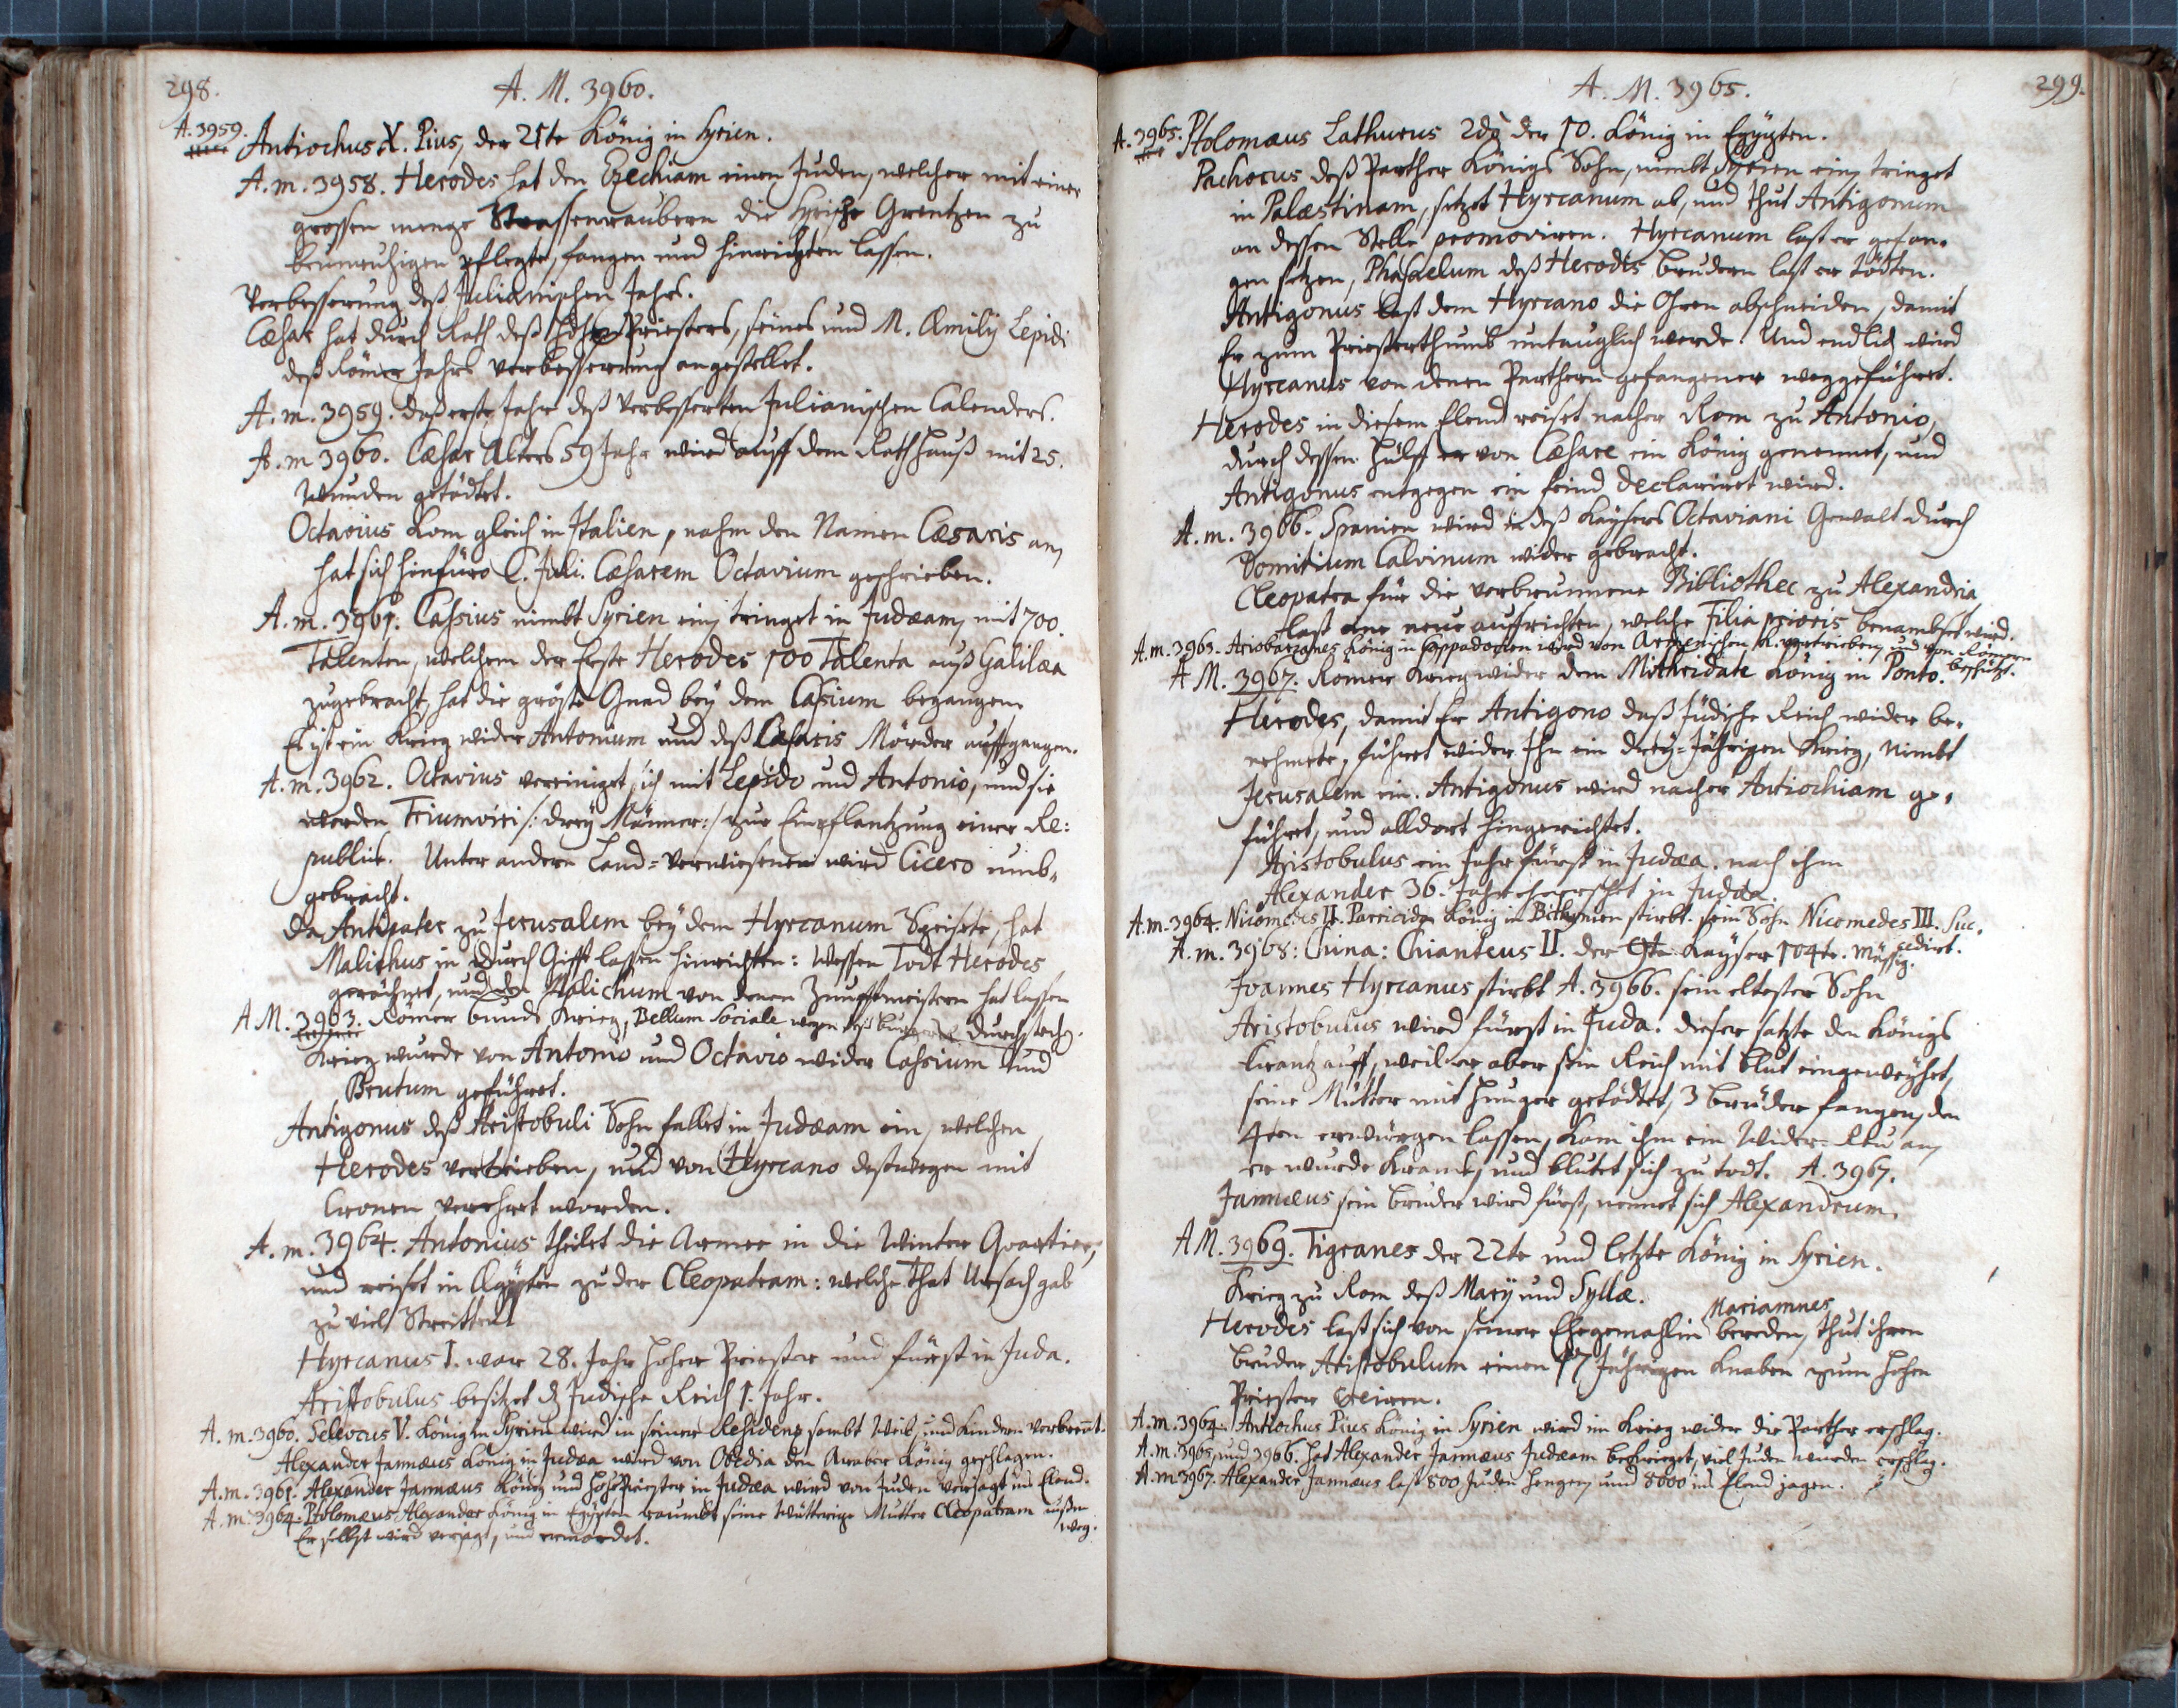 298.
A. M. 3960.
A. 3959. Antiochus X. Pius, der 21te König in Syrien.
A. m. 3958. Herodes hat den Ezechiam einen Juden, welcher mit einer
grossen menge Strassenraubern die Syrische Grentzen zu
beunruhigen pflegte, fangen und hinrichten lassen.
Verbesserung deß Julianischen Jahrs.
Cæsar hat durch Rath deß Priesters, seines und M. Æmilij Lepidi
deß Römer Jahrs verbesserung angestellet.
A. m. 3959. daß erste Jahr deß verbesserten Julianischen Calenders.
A. m 3960. Cæsar Alters 59 Jahr wird auff dem Rathhauß mit 25.
Wunden getödtet.
Octavius kom gleich in Italien, nahm den Namen Cæsaris an,
hat sich hinfüro C. Juli. Cæsarem Octavium geschrieben.
A. m. 3961. Cassius nimbt Syrien ein, tringet in Judæam, mit 700.
Talenten, welchem der Erste Herodes 100 Talenta auß Galilæa
zugebracht, hat die gröste Gnad bey dem Casium begangen.
Es ist ein Krieg wider Antonium und deß Cæsaris Mörder auffgangen.
A. m. 3962. Octavius vereiniget sich mit Lepido und Antonio, und sie
werden Triumviri /: drey Männer :/ zur Einpflantzung einer Re:
public. Unter andern Land=verwiesenen wird Cicero umb-
gebracht.
Da Antipater zu Jerusalem bey dem Hyrcanum Speisete, hat
Malichus in durch Gifft lassen hinrichten: wessen Todt Herodes
gerächnet, und den Malichum von denen Zunfftmeistern hat lassen
durchstech.
A M. 3963. Römer bunds Krieg, Bellum Sociale wegen deß
Krieg wurde von Antonio und Octavio wider Cassium und
Brutum geführet.
Antigonus deß Aristobuli Sohn fallet in Judæam ein, welchen
Herodes vertrieben, und von Hyrcano destwegen mit
Cronen verehret worden.
A. m. 3964. Antonius theilet die Armee in die Winter Quartier,
und reiset in Ægypten zu der Cleopatram: welche That Ursach gab
zu viel Streitten
Hyrcanus I. war 28. Jahr hoher Priester und fürst in Juda.
Aristobulus besitzet d. Judische Reich 1. Jahr.
A. m. 3960. Selevcus V. König in Syrien wird in seiner Residenz sambt Weib, und Kindern verbrennt.
Alexander Jannæus König in Judæa wird von Obedia den Araber König geschlagen.
A. m. 3961. Alexander Jannæus König und hohe Priester in Judæa wird von Juden verjagt ins Elend.
A. m. 3964. Ptolomæus Alexander König in Egypten raumbt seine Mutter Cleopatram außm
weg.
Er selbst wird verjagt, und ermordet.
299.
A. M. 3965.
A. 3965. Ptolomæus Lathurus 2do der 10. König in Egypten.
Pachorus deß Parther Königs Sohn, nimbt Syrien ein, tringet
in Palæstinam, setzet Hyrcanum ab, und thut Antigonum
an dessen Stelle promoviren. Hyrcanum last er gefan-
gen setzen, Phasaelum deß Herodis brudern last er tödten.
Antigonus last dem Hyrcano die Ohren abschneiden, damit
Er zum Priesterthumb untauglich werde. Und endlich wird
Hyrcanus von denen Parthern gefangener weggeführet.
Herodes in diesem Elend reiset nacher Rom zu Antonio,
durch dessen hülff er von Cæsare ein König genennet, und
Antigonus entgegen ein feind declariret wird.
A. m. 3966. Spanien wird in deß Kaysers Octaviani Gewalt durch
Domitium Calvinum wider gebracht.
Cleopatra für die verbrunnene Bibliothec zu Alexandria
last eine neue auffrichten, welche Filia prioris benambset wird.
A. m. 3963. Ariobarzanes König in Cappadocien wird von Armenischen K. vertrieben, und von Römern
beschützt.
A M. 3967. Römer Krieg wider dem Mithridate König in Ponto.
Herodes, damit Er Antigono daß Jüdische Reich wider be-
nehmete, führet wider Ihn ein drey=Jährigen Krieg, nimbt
Jerusalem ein. Antigonus wird nacher Antiochiam ge-
führet, und alldort hingerichtet.
Aristobulus ein Jahr fürst in Judæa. nach ihm
Alexander 36. Jahr herrschet in Judæa
A. m. 3964. Nicomedes II. Parricida König in Bithynien stirbt. sein Sohn Nicomedes III. Suc-
cedirt.
A. m. 3968: China: Chianteus II. der Kayser 104te. müssig.
Joannes Hyrcanus stirbt A. 3966. sein eltester Sohn
Aristobulus wird fürst in Juda. dieser satzte den Königs
Krantz auff, weil er aber sein Reich mit blut eingeweyhet,
seine Mutter mit hunger getödtet, 3 brüder fangen, den
4ten erwürgen lassen, kam ihm ein Wider=Reu an,
er wurde kranck, und blutet sich zu todt. A. 3967.
Jannæus sein bruder wird fürst, nennet sich Alexandrum.
A M. 3969. Tigranes der 22te und letzte König in Syrien.
Krieg zu Rom deß Marij und Syllæ.
Herodes last sich von seiner Ehegemahlin Mariamnes bereden, thut ihren
bruder Aristobulum einen 17 Jährigen Knaben zum hohen
Priester creiren.
A. m. 3964. Antiochus Pius König in Syrien wird im Krieg wider die Parther erschlag.
A. m. 3965, und 3966. hat Alexander Jannæus Judæam bekrieget, viel Juden wurden erschlag.
A. m 3967. Alexander Jannæus last 800 Juden hengen, und 8000 ins Elend jagen.